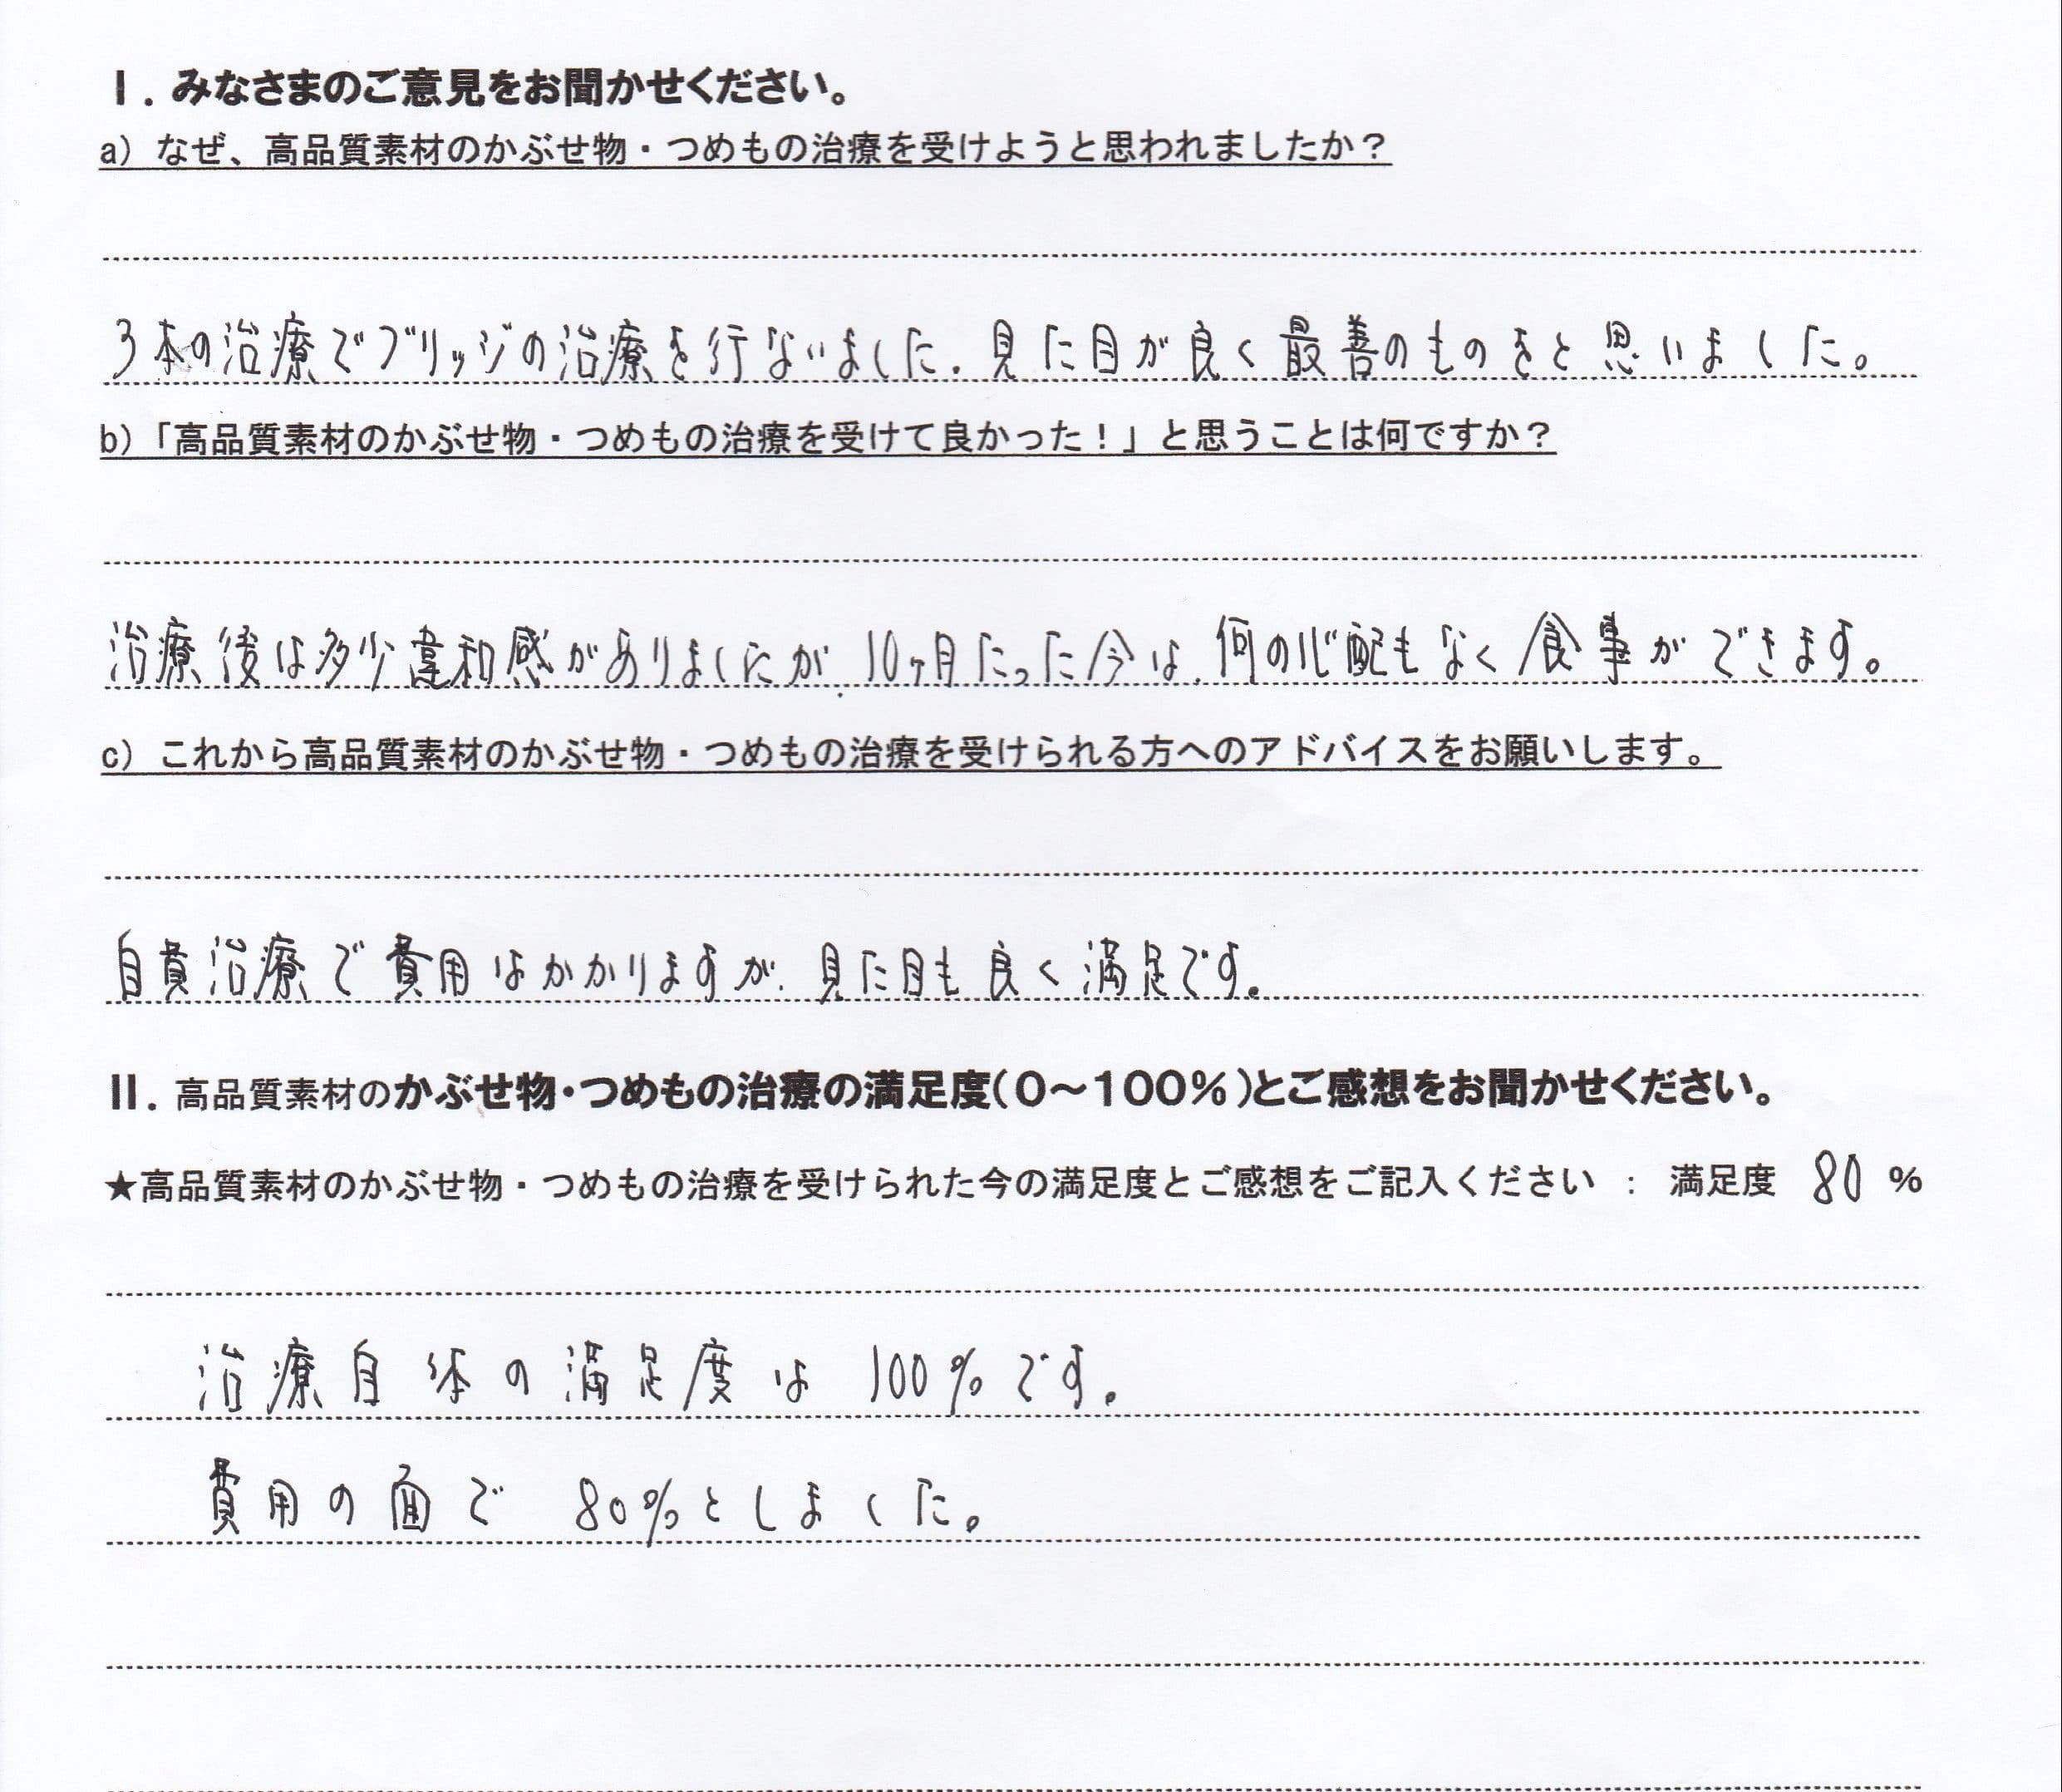 Ⅰ. みなさまのご意見をお聞かせください。
a) なぜ、高品質素材のかぶせ物・つめもの治療を受けようと思われましたか？
3本の治療でブリッジの治療を行ないました。見た目が良く最善のものをと思いました。
b)「高品質素材のかぶせ物・つめもの治療を受けて良かった！」と思うことは何ですか？
治療後は多少違和感がありましたが、10ヶ月たった今は、何の心配もなく食事ができます。
c) これから高品質素材のかぶせ物・つめもの治療を受けられる方へのアドバイスをお願いします。
自費治療で費用はかかりますが、見た目も良く満足です。
Ⅱ. 高品質素材のかぶせ物・つめもの治療の満足度(０～１００％)とご感想をお聞かせください。
★高品質素材のかぶせ物・つめもの治療を受けられた今の満足度とご感想をご記入ください ： 満足度 80 %
治療自体の満足度は 100%です。
費用の面で 80%としました。